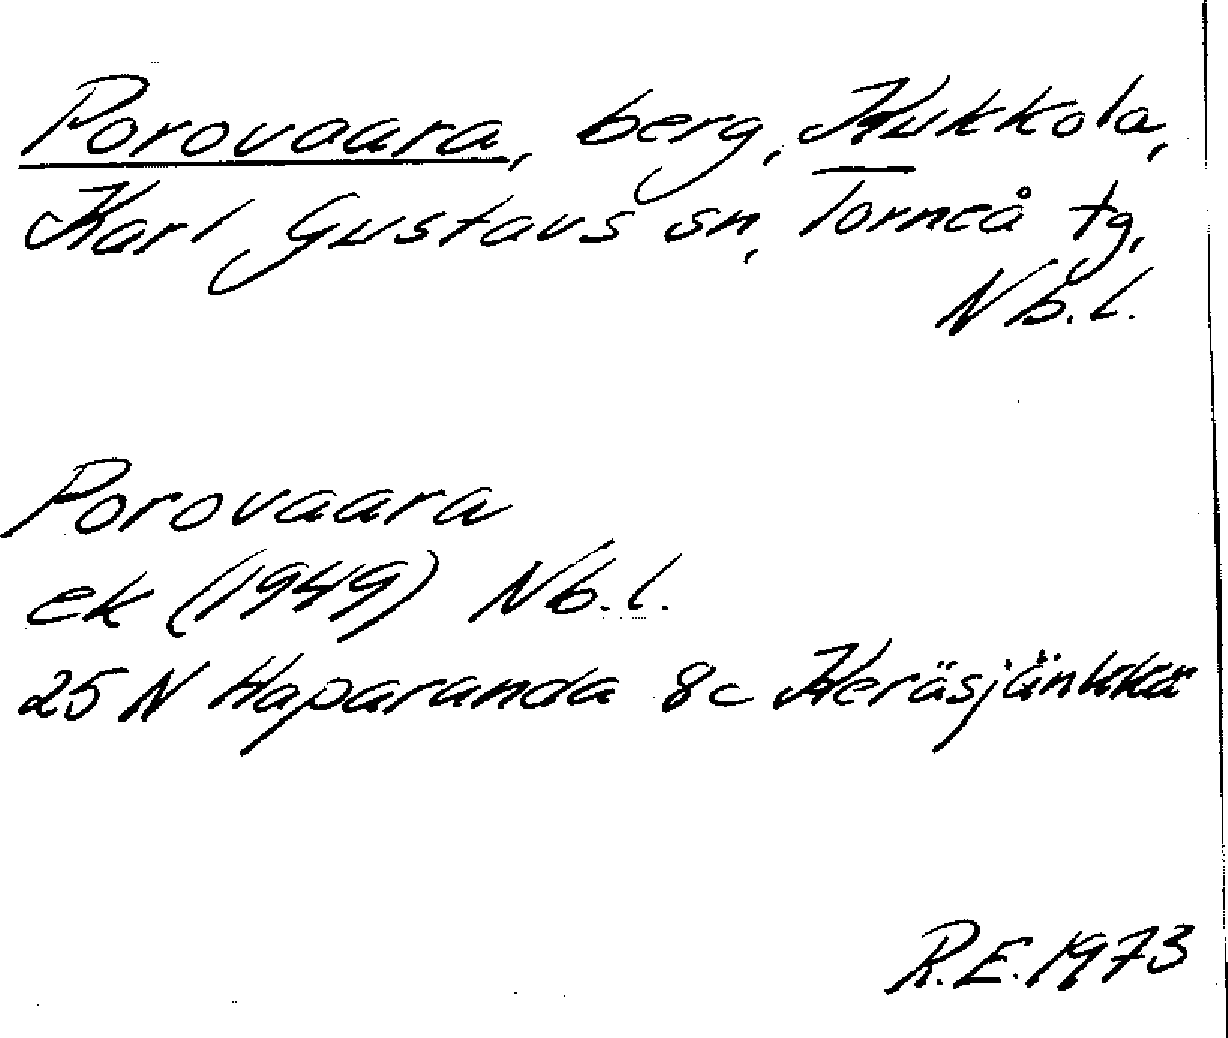 Porovaara, berg, Kukkola,
Karl Gustavs sn, Torneå tg,
Nb.l.
Porovaara
ek (1949) Nb.l.
25 N Haparanda 8c Keräsjänkkä
R.E. 1973